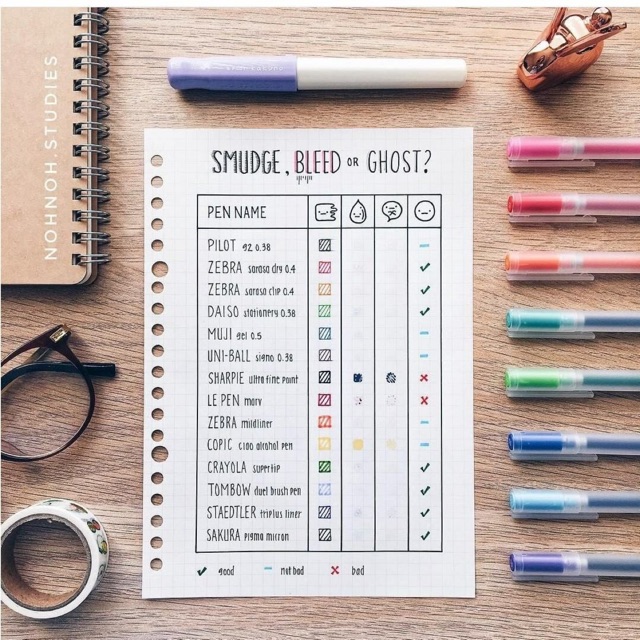 NOHNOH.STUDIES
SMUDGE, BLEED OR GHOST?
PEN NAME
PILOT g2 0.38
ZEBRA sarasa dry 0.4
ZEBRA sarasa clip 0.4
DAISO stationery 0.38
MUJI gel 0.5
UNI-BALL signo 0.38
SHARPIE ultra fine point
LE PEN marvy
ZEBRA mildliner
COPIC ciao alcohol pen
CRAYOLA supertip
TOMBOW duel brush pen
STAEDTLER triplus liner
SAKURA pigma micron
✓ good – not bad × bad